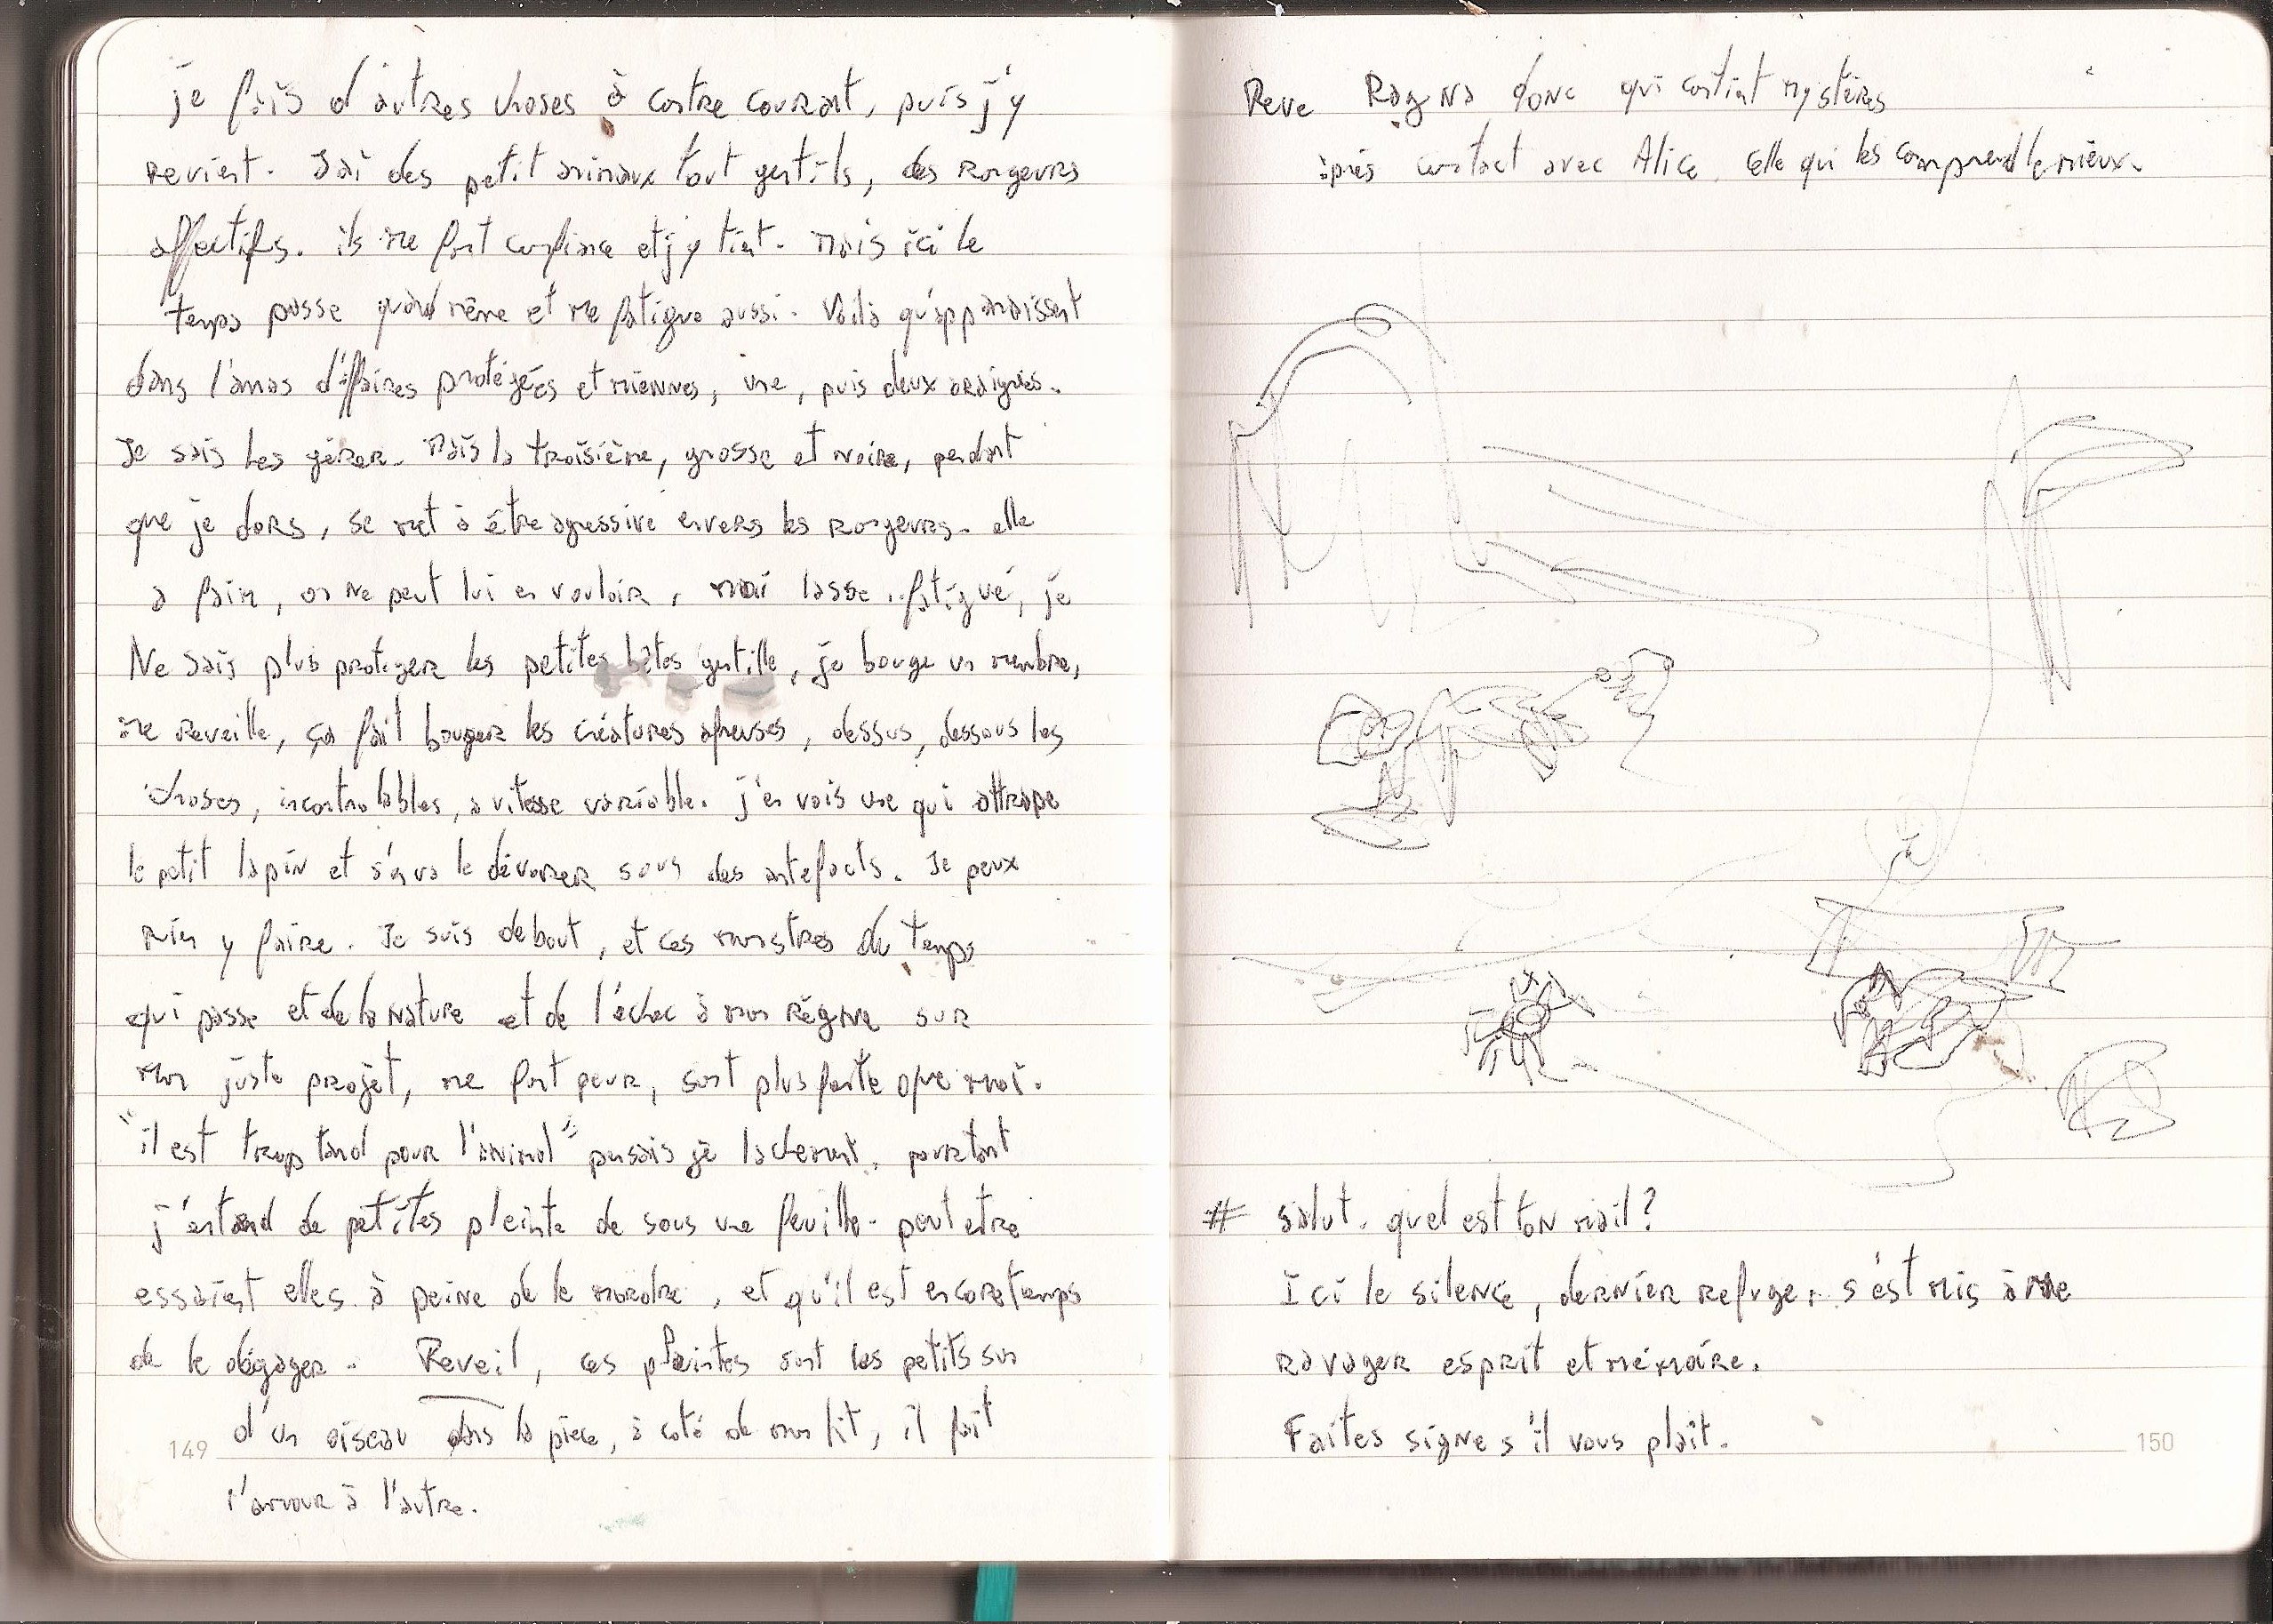 je fais d'autres choses à contre courant, puis j'y
revient. J'ai des petit animaux tout gentils, des rongeurs
affectifs. ils me font confiance et j'y tient. Mais ici le
temps passe quand même et me fatigue aussi. Voilà qu'apparaissent
dans l'amas d'affaires protégées et miennes, une, puis deux araignées.
Je sais les gérer. Mais la troisième, grosse et noire, pendant
que je dors, se met à être agressive envers les rongeurs. elle
a faim, on ne peut lui en vouloir, moi lasse, fatigué, je
Ne sais plus proteger les petites bêtes gentille, je bouge un membre,
me reveille, ça fait bouger les créatures afreuses, dessus, dessous les
choses, incontrolables, a vitesse variable. j'en vois une qui attrape
le petit lapin et s'en va le dévorer sous des artefacts. Je peux
rien y faire. Je suis debout, et ces monstres du temps
qui passe et de la nature et de l'échec à mon règne sur
mon juste projet, me font peur, sont plus forte que moi.
"il est trop tard pour l'animal" pensais je lachement, pourtant
j'entend de petites pleinte de sous une feuille. peut etre
essaient elles à peine de le mordre, et qu'il est encore temps
de le dégager. Reveil, ces plaintes sont les petits son
d'un oiseau dans la pièce, à coté de mon lit, il fait
l'amour à l'autre.
149
Reve Ragna donc qui contint mystères
après contact avec Alice, celle qui les comprend le mieux.
# salut. quel est ton mail?
Ici le silence, dernier refuge, s'est mis à me
ravager esprit et mémoire.
Faites signe s'il vous plaît.
150